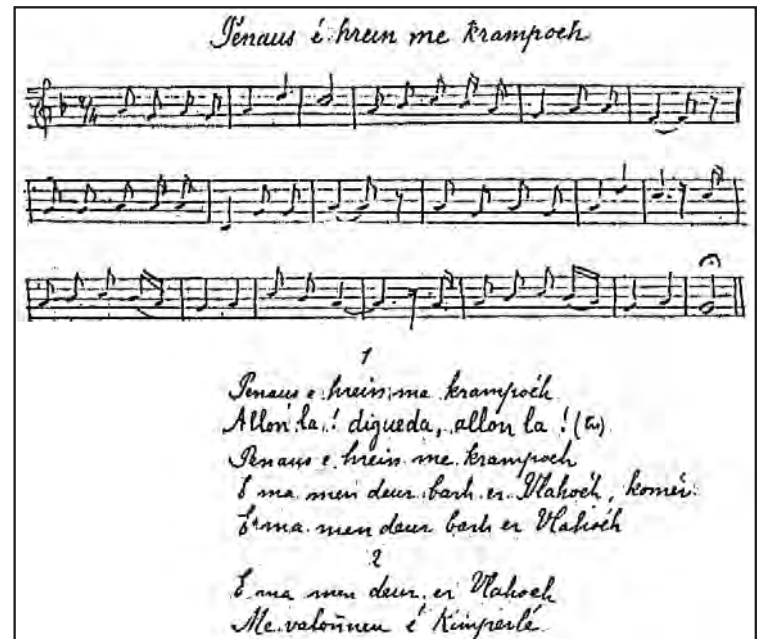 Penaus é hrein me krampoeh
2/4
1
Penaus e hrein me krampoéh
Allon la ! digueda, allon la ! (bis)
Penaus e hrein me krampoeh
E ma men deur barh er Vlahoéh, komér
E ma men deur barh er Vlahoéh
2
E ma men deur er Vlahoeh
Me valoñneu é Kimperlé